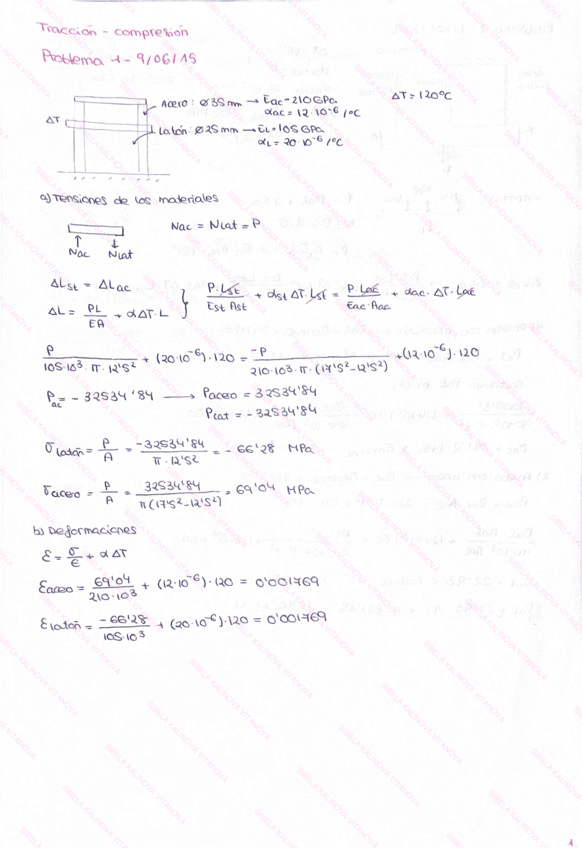 Tracción - compresión
Problema 1 - 9/06/15
Acero: ø35mm → Eac = 210GPa
αac = 12·10⁻⁶ /ºC
ΔT = 120ºC
ΔT
Latón: ø25mm → EL = 105GPa
αL = 20·10⁻⁶ /ºC
a) Tensiones de los materiales
Nac = Nlat = P
Nac Nlat
ΔLst = ΔLac
ΔL = PL/EA + αΔT·L
P·Lst/Est Ast + αst ΔT·Lst = P·Lac/Eac·Aac + αac·ΔT·Lac
P/105·10³·π·12'5² + (20·10⁻⁶)·120 = -P/210·10³·π·(17'5²-12'5²) + (12·10⁻⁶)·120
Pac = -32534'84 → Pacero = 32534'84
Plat = -32534'84
σlatón = P/A = -32534'84/π·12'5² = -66'28 MPa
σacero = P/A = 32534'84/π(17'5²-12'5²) = 69'04 MPa
b) Deformaciones
ε = σ/E + αΔT
εacero = 69'04/210·10³ + (12·10⁻⁶)·120 = 0'001769
εlatón = -66'28/105·10³ + (20·10⁻⁶)·120 = 0'001769
SIBELA KALINOVA VITANOVA
1